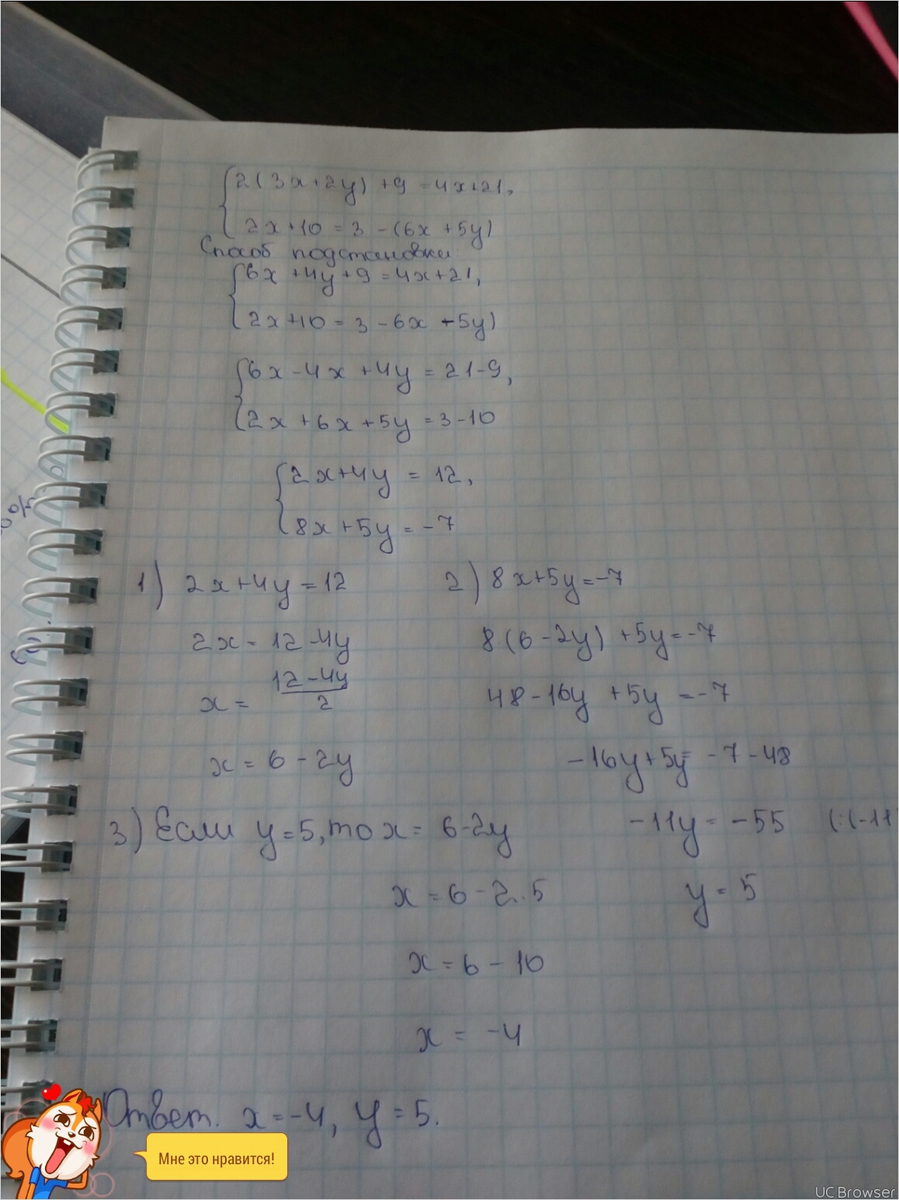 2(3x+2y)+9=4x+21,
2x+10=3-(6x+5y)
Способ подстановки
6x+4y+9=4x+21,
2x+10=3-6x-5y)
6x-4x+4y=21-9,
2x+6x+5y=3-10
2x+4y=12,
8x+5y=-7
1) 2x+4y=12
2x=12-4y
x=12-4y/2
x=6-2y
2) 8x+5y=-7
8(6-2y)+5y=-7
48-16y+5y=-7
-16y+5y=-7-48
-11y=-55 (:(-11)
y=5
3) Если y=5, то x=6-2y
x=6-2.5
x=6-10
x=-4
Ответ. x=-4, y=5.
Мне это нравится!
UC Browser